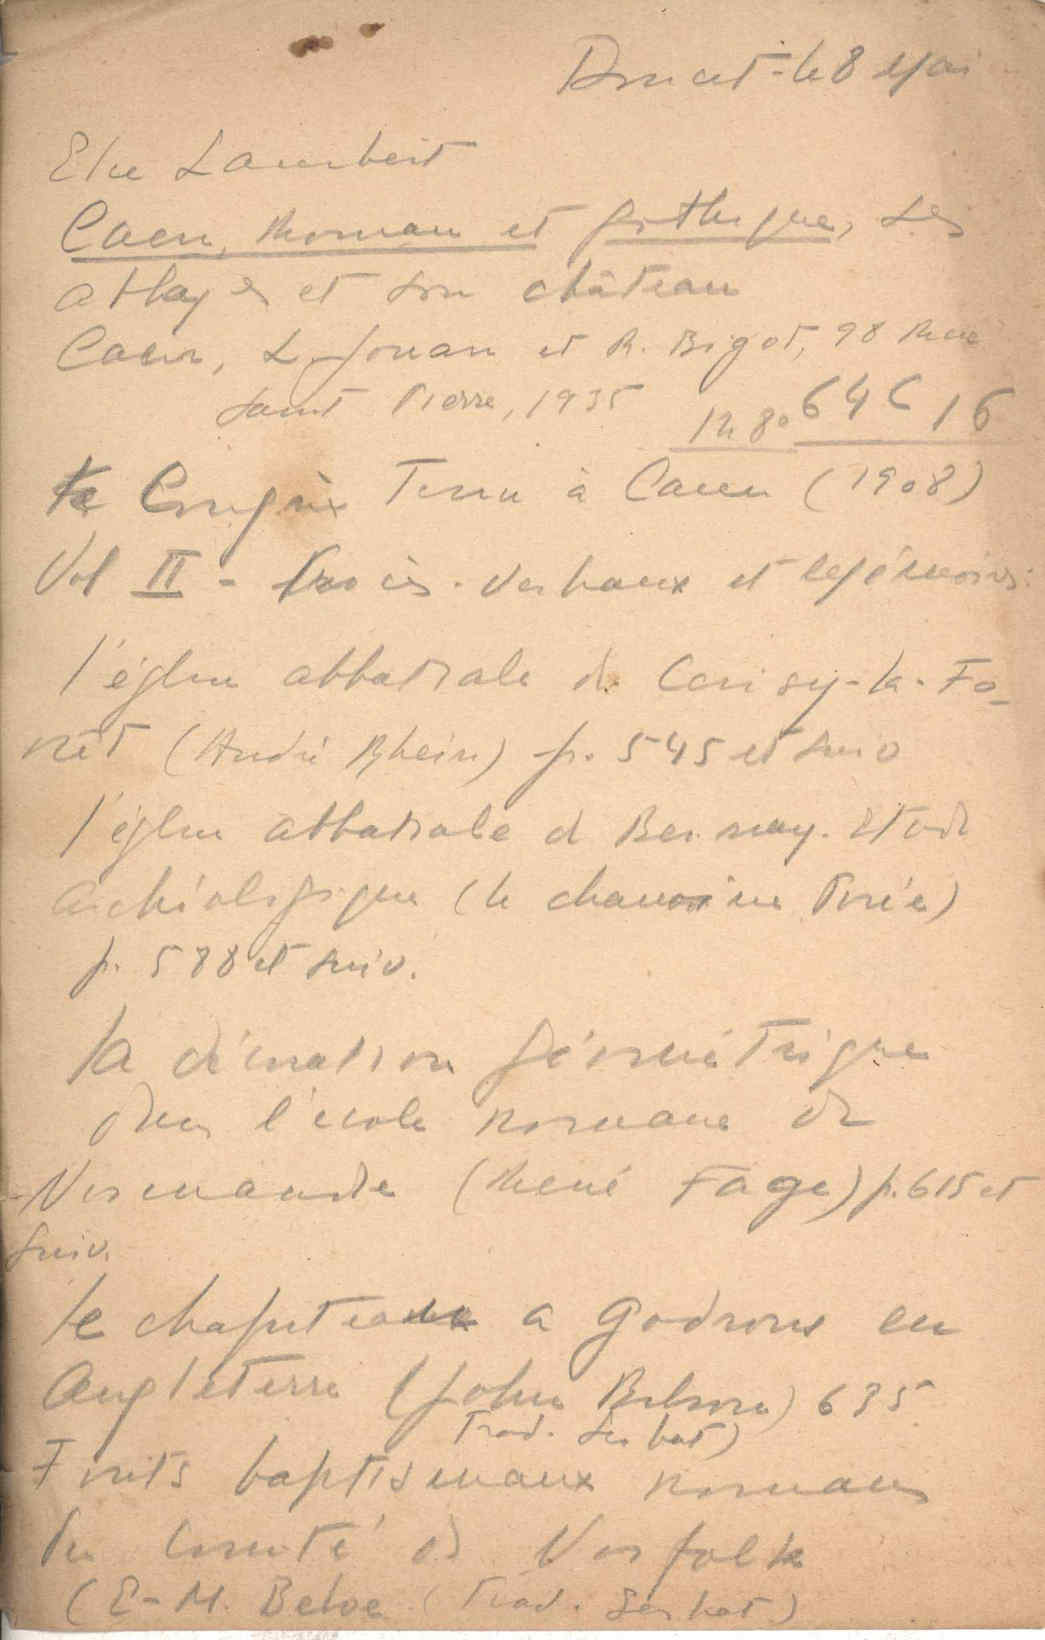 Doucet - le 8 Mai
Elie Lambert
Caen, Roman et gothique, ses
abbayes et son château
Caen, L. Jouan et R. Bigot, 98 Rue
Saint Pierre, 1935
12 80 64 C 16
Le Congrès Tenu à Caen (1908)
Vol II - Procès-Verbaux et Mémoires :
l'église abbatiale de Cerisy-la-Fo-
rêt (André Rhein) p. 545 et suiv
l'église abbatiale de Bernay. Etude
archéologique (le chanoine Porée)
p. 588 et suiv.
la décoration géométrique
dans l'école normane de
Normandie (René Fage) p. 615 et
suiv.
le chapiteau a godrons en
Angleterre (John Bilson) 635
Trad. Serbat)
Fonts baptismaux romans
du Comté de Norfolk
(E-M. Beloe (Trad. Serbat)